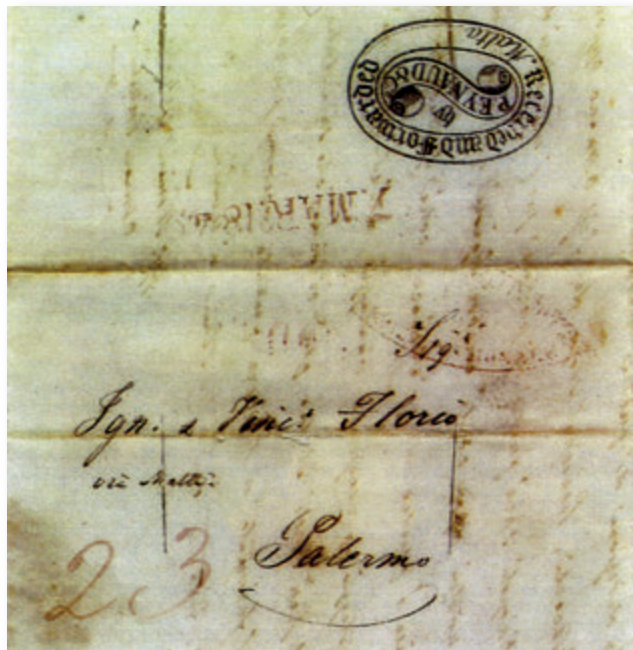 Received and Forwarded
by
PEYNAUD & C.
Malta.
7. MAR. 18
Sig.ri
Ign. e Vinc. Florio
via Malta
Palermo
23